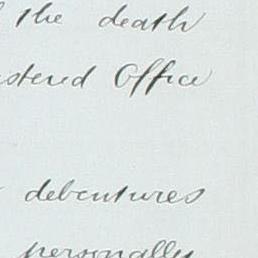 the death
stered Office
debentures
personally